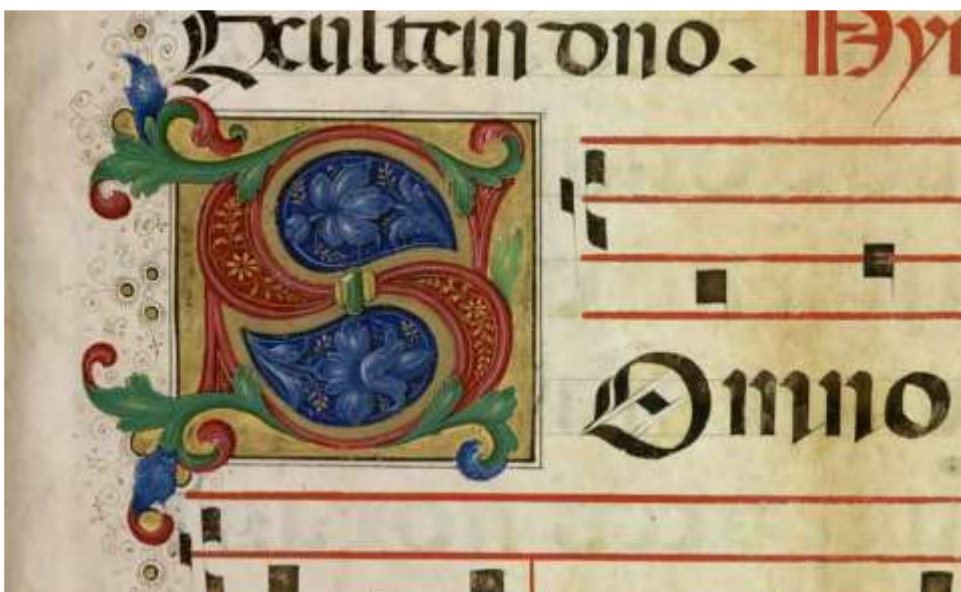 Exultem dno. Hy
S
Omno